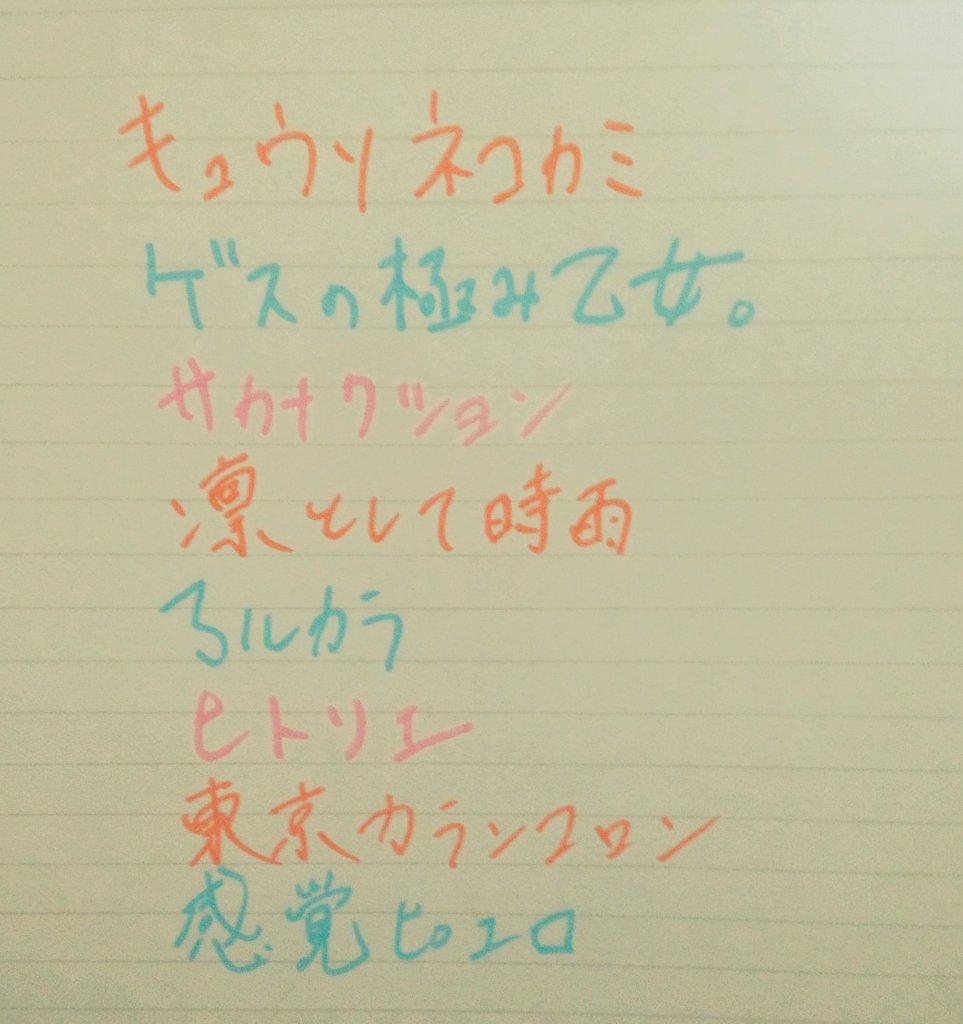 キュウソネコカミ
ゲスの極み乙女。
サカナクション
凛として時雨
アルカラ
ヒトリエ
東京カランコロン
感覚ピエロ